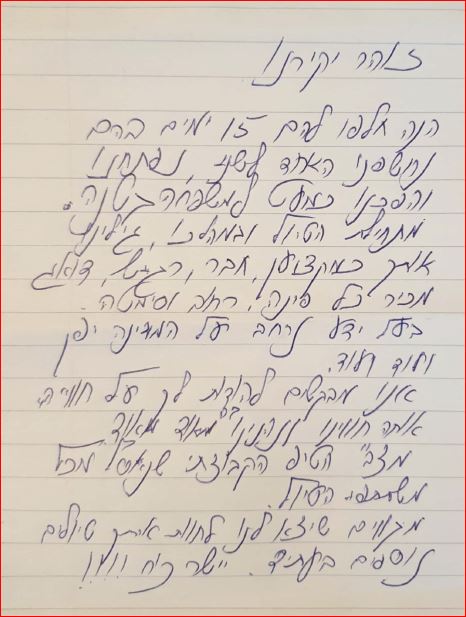 זוהר יקירנו
הנה חלפו להם 15 ימים בהם
נחשפנו האחד לשני, נפתחנו
והפכנו כמעט למשפחה קטנה.
מתחילת הטיול ובמהלכו, גילינו
אותך כמקצוען, חבר, רגיש, דואג
מכיר כל פינה, רחוב וסימטה.
בעל ידע נרחב על המדינה יפן
ועוד ועוד.
אנו מבקשים להודות לך על חוויה
אותה חווינו ונהנינו בה מאוד מאוד.
מצב הטיפ הקבוצתי שנאסף מכל
משתתפי הטיול.
מקווים שיצא לנו לחוות איתך טיולים
נוספים בעתיד. יישר כוח !!!!